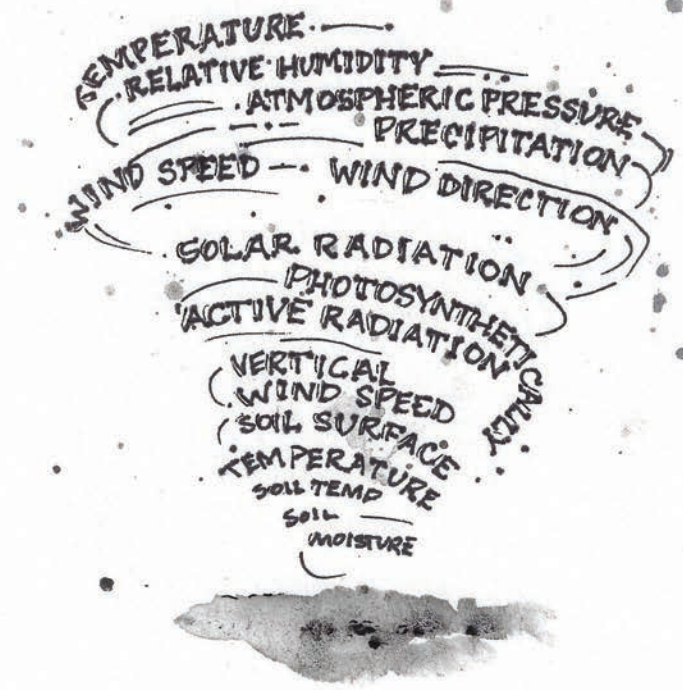 TEMPERATURE
RELATIVE HUMIDITY
ATMOSPHERIC PRESSURE
PRECIPITATION
WIND SPEED – WIND DIRECTION
SOLAR RADIATION
PHOTOSYNTHETICALLY
ACTIVE RADIATION
VERTICAL
WIND SPEED
SOIL SURFACE
TEMPERATURE
SOIL TEMP
SOIL
MOISTURE